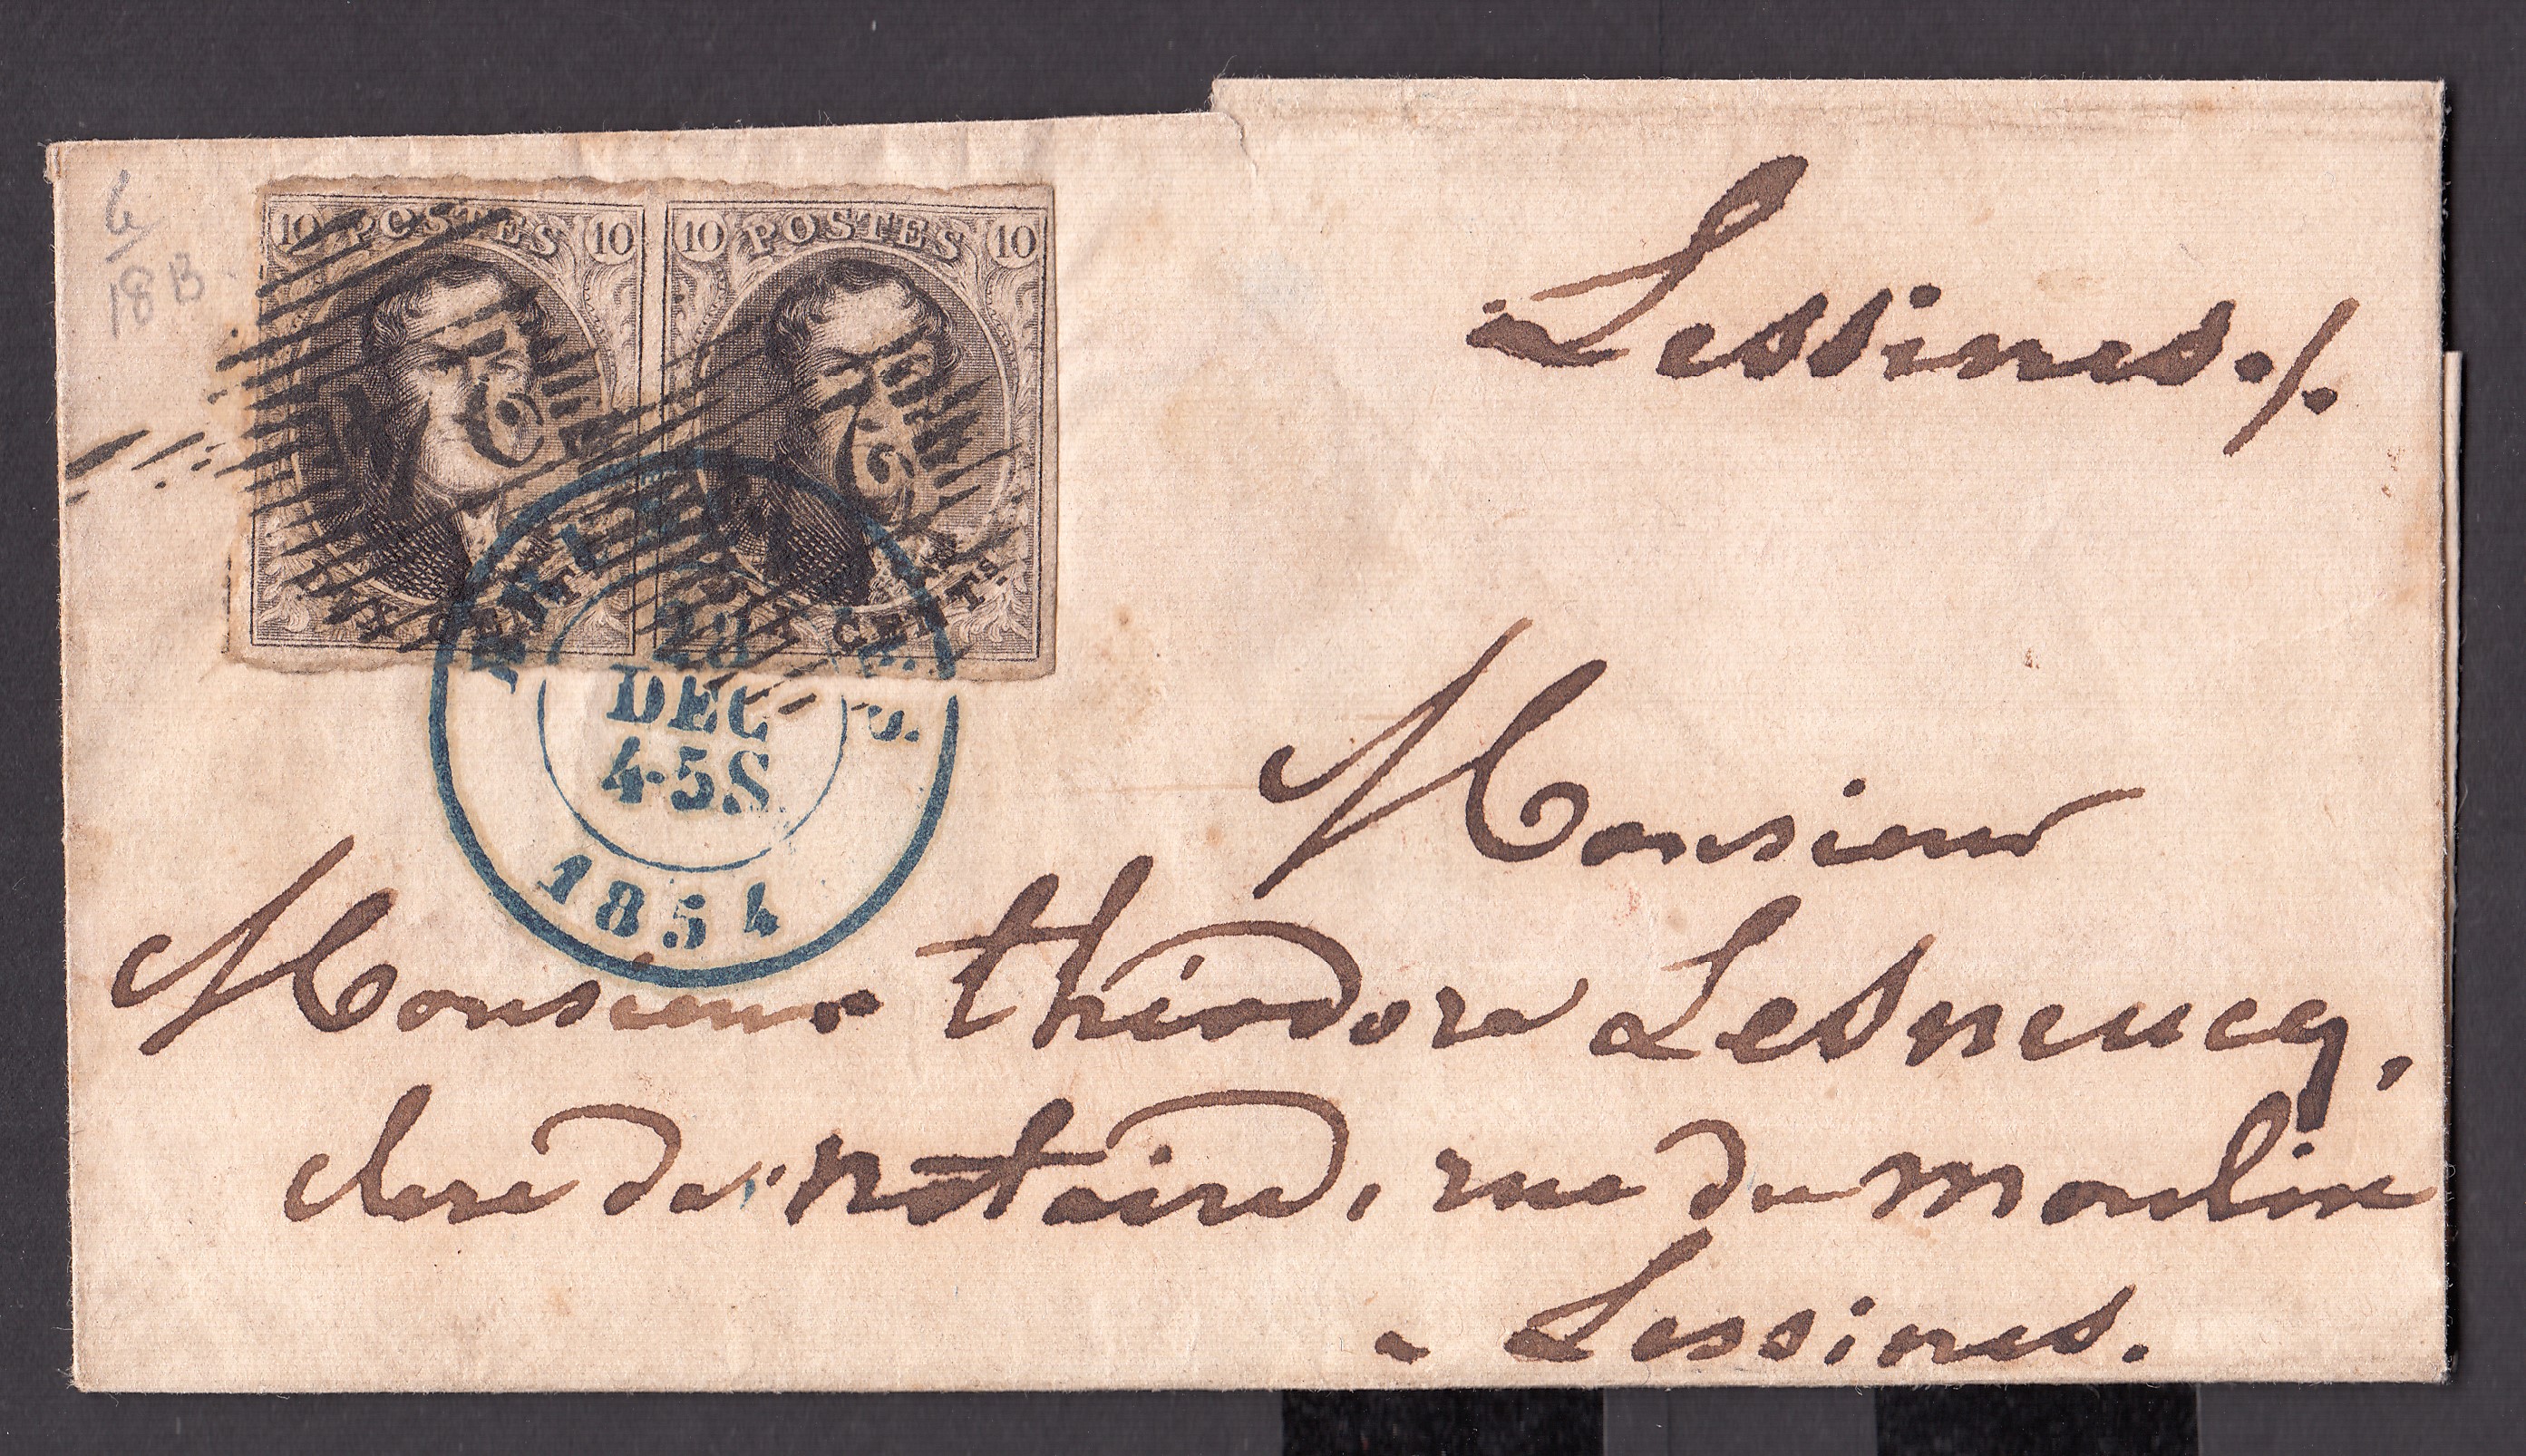 6
18 B
10 POSTES 10
10 POSTES 10
6
6
CENTS.
20
DEC
4-5S
1854
Lessines./.
Monsieur
Monsieur théodore Lesneucq,
clerc de notaire, rue du moulin
Lessines.